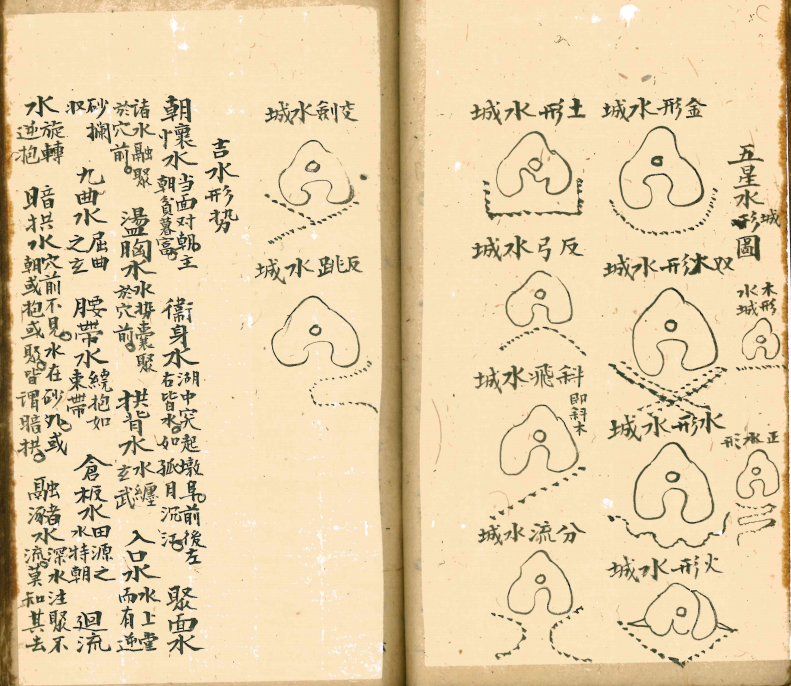 五星水城形圖
木形水城
正水形
金形水城
双木形水城
水形水城
火形水城
土形水城
反弓水城
斜飛水城
即斜木
分流水城
交劍水城
反跳水城
吉水形势
朝懷水 当面对朝主朝貧暮富 衞身水 湖中突起墩阜前後左右皆水如孤月沉江 聚面水
諸水融聚於穴前 盪胸水 水攢囊聚於穴前 拱背水 水纏玄武 入口水 水上堂而有逆
砂攔收 九曲水 屈曲之玄 腰帶水 繞抱如束帶 倉板水 田源之水特朝 迴流
水 旋轉逆抱 暗拱水 穴前不見水在砂外或朝或抱或聚皆谓暗拱 融潴水 深水注聚不流莫知其去